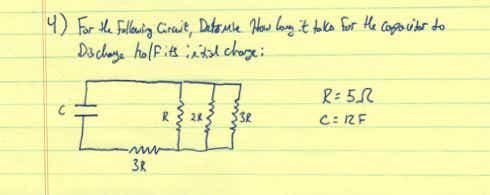 4) For the following Circuit, Determine How long it takes for the capacitor to
Discharge half its initial charge:
R = 5Ω
C
R
2R
3R
C = 12F
3R